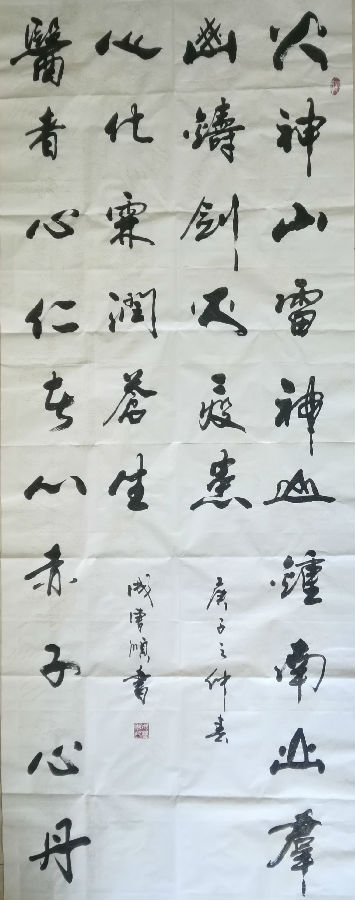 火神山雷神山鍾南山群
山鑄劍疫患
庚子之仲春
醫者心仁者心赤子心丹
心化霖潤蒼生
順書